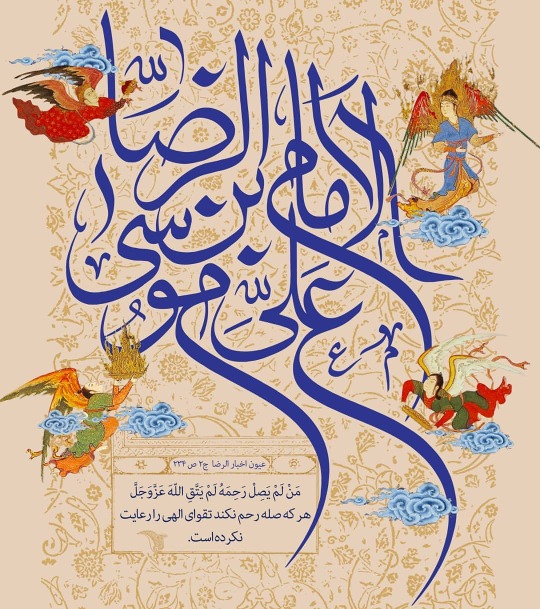 الامام علی بن موسی الرضا
عیون اخبار الرضا ج۲ ص ۲۳۴
مَنْ لَمْ يَصِلْ رَحِمَهُ لَمْ يَتَّقِ اللّهَ عَزَّوَجَلَّ
هر که صله رحم نکند تقوای الهی را رعایت
نکرده است.